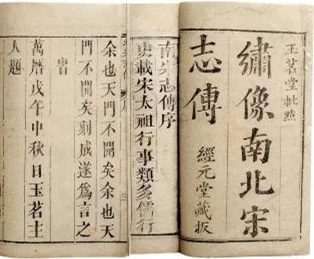 玉茗堂批點
繡像南北宋
志傳
經元堂藏板
南宋志傳序
史載宋太祖行事類多儒行
余也天門不開矣余也天
門不開矣刻成遂為言之
旹
萬曆戊午中秋日玉茗主
人題